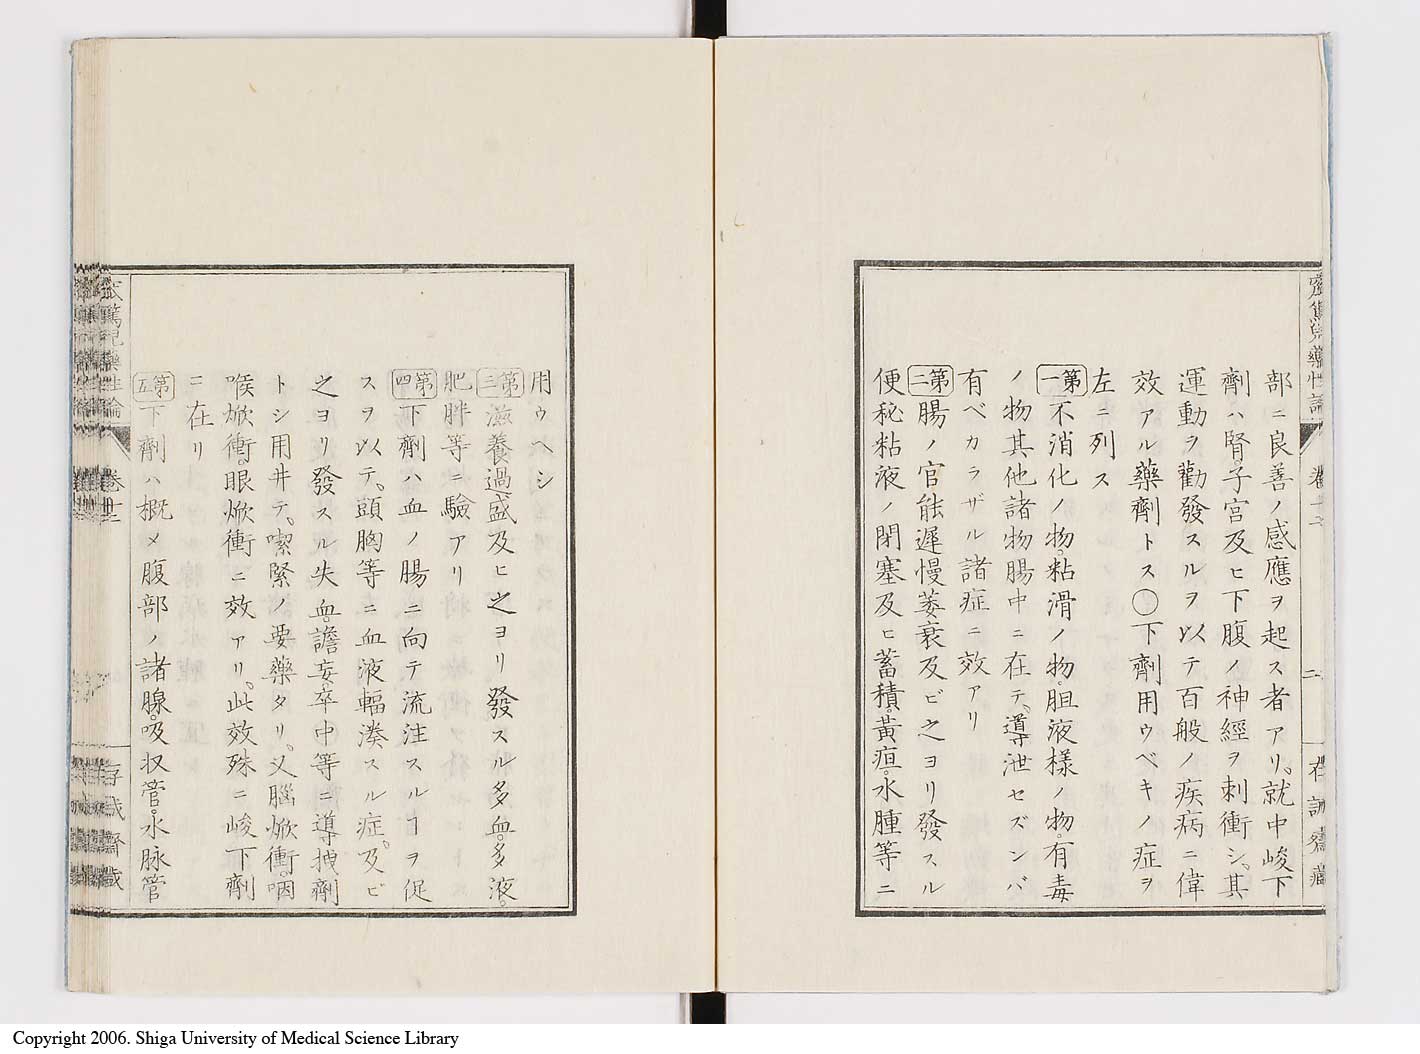 部ニ良善ノ感應ヲ起ス者アリ。就中峻下
劑ハ腎。子宮及ヒ下腹ノ神經ヲ刺衝シ。其
運動ヲ勸發スルヲ以テ百般ノ疾病ニ偉
效アル藥劑トス〇下劑用ウベキノ症ヲ
左ニ列ス
第一不消化ノ物。粘滑ノ物。胆液樣ノ物。有毒
ノ物其他諸物腸中ニ在テ。導泄セズンバ
有ベカラザル諸症ニ效アリ
第二腸ノ官能遲慢萎衰及ビ之ヨリ發スル
便秘粘液ノ閉塞及ヒ蓄積。黃疸。水腫等ニ
用ウヘシ
第三滋養過盛及ヒ之ヨリ發スル多血。多液。
肥胖等ニ驗アリ
第四下劑ハ血ノ腸ニ向テ流注スルヿヲ促
スヲ以テ。頭胸等ニ血液輻湊スル症。及ビ
之ヨリ發スル失血。譫妄。卒中等ニ導拽劑
トシ用井テ。喫緊ノ要藥タリ。又腦焮衝。咽
喉焮衝。眼焮衝ニ效アリ。此效殊ニ峻下劑
ニ在リ
第五下劑ハ概メ腹部ノ諸腺。吸収管。水脉管
窊篤兒藥性論
卷十三
存誠齋藏
Copyright 2006. Shiga University of Medical Science Library